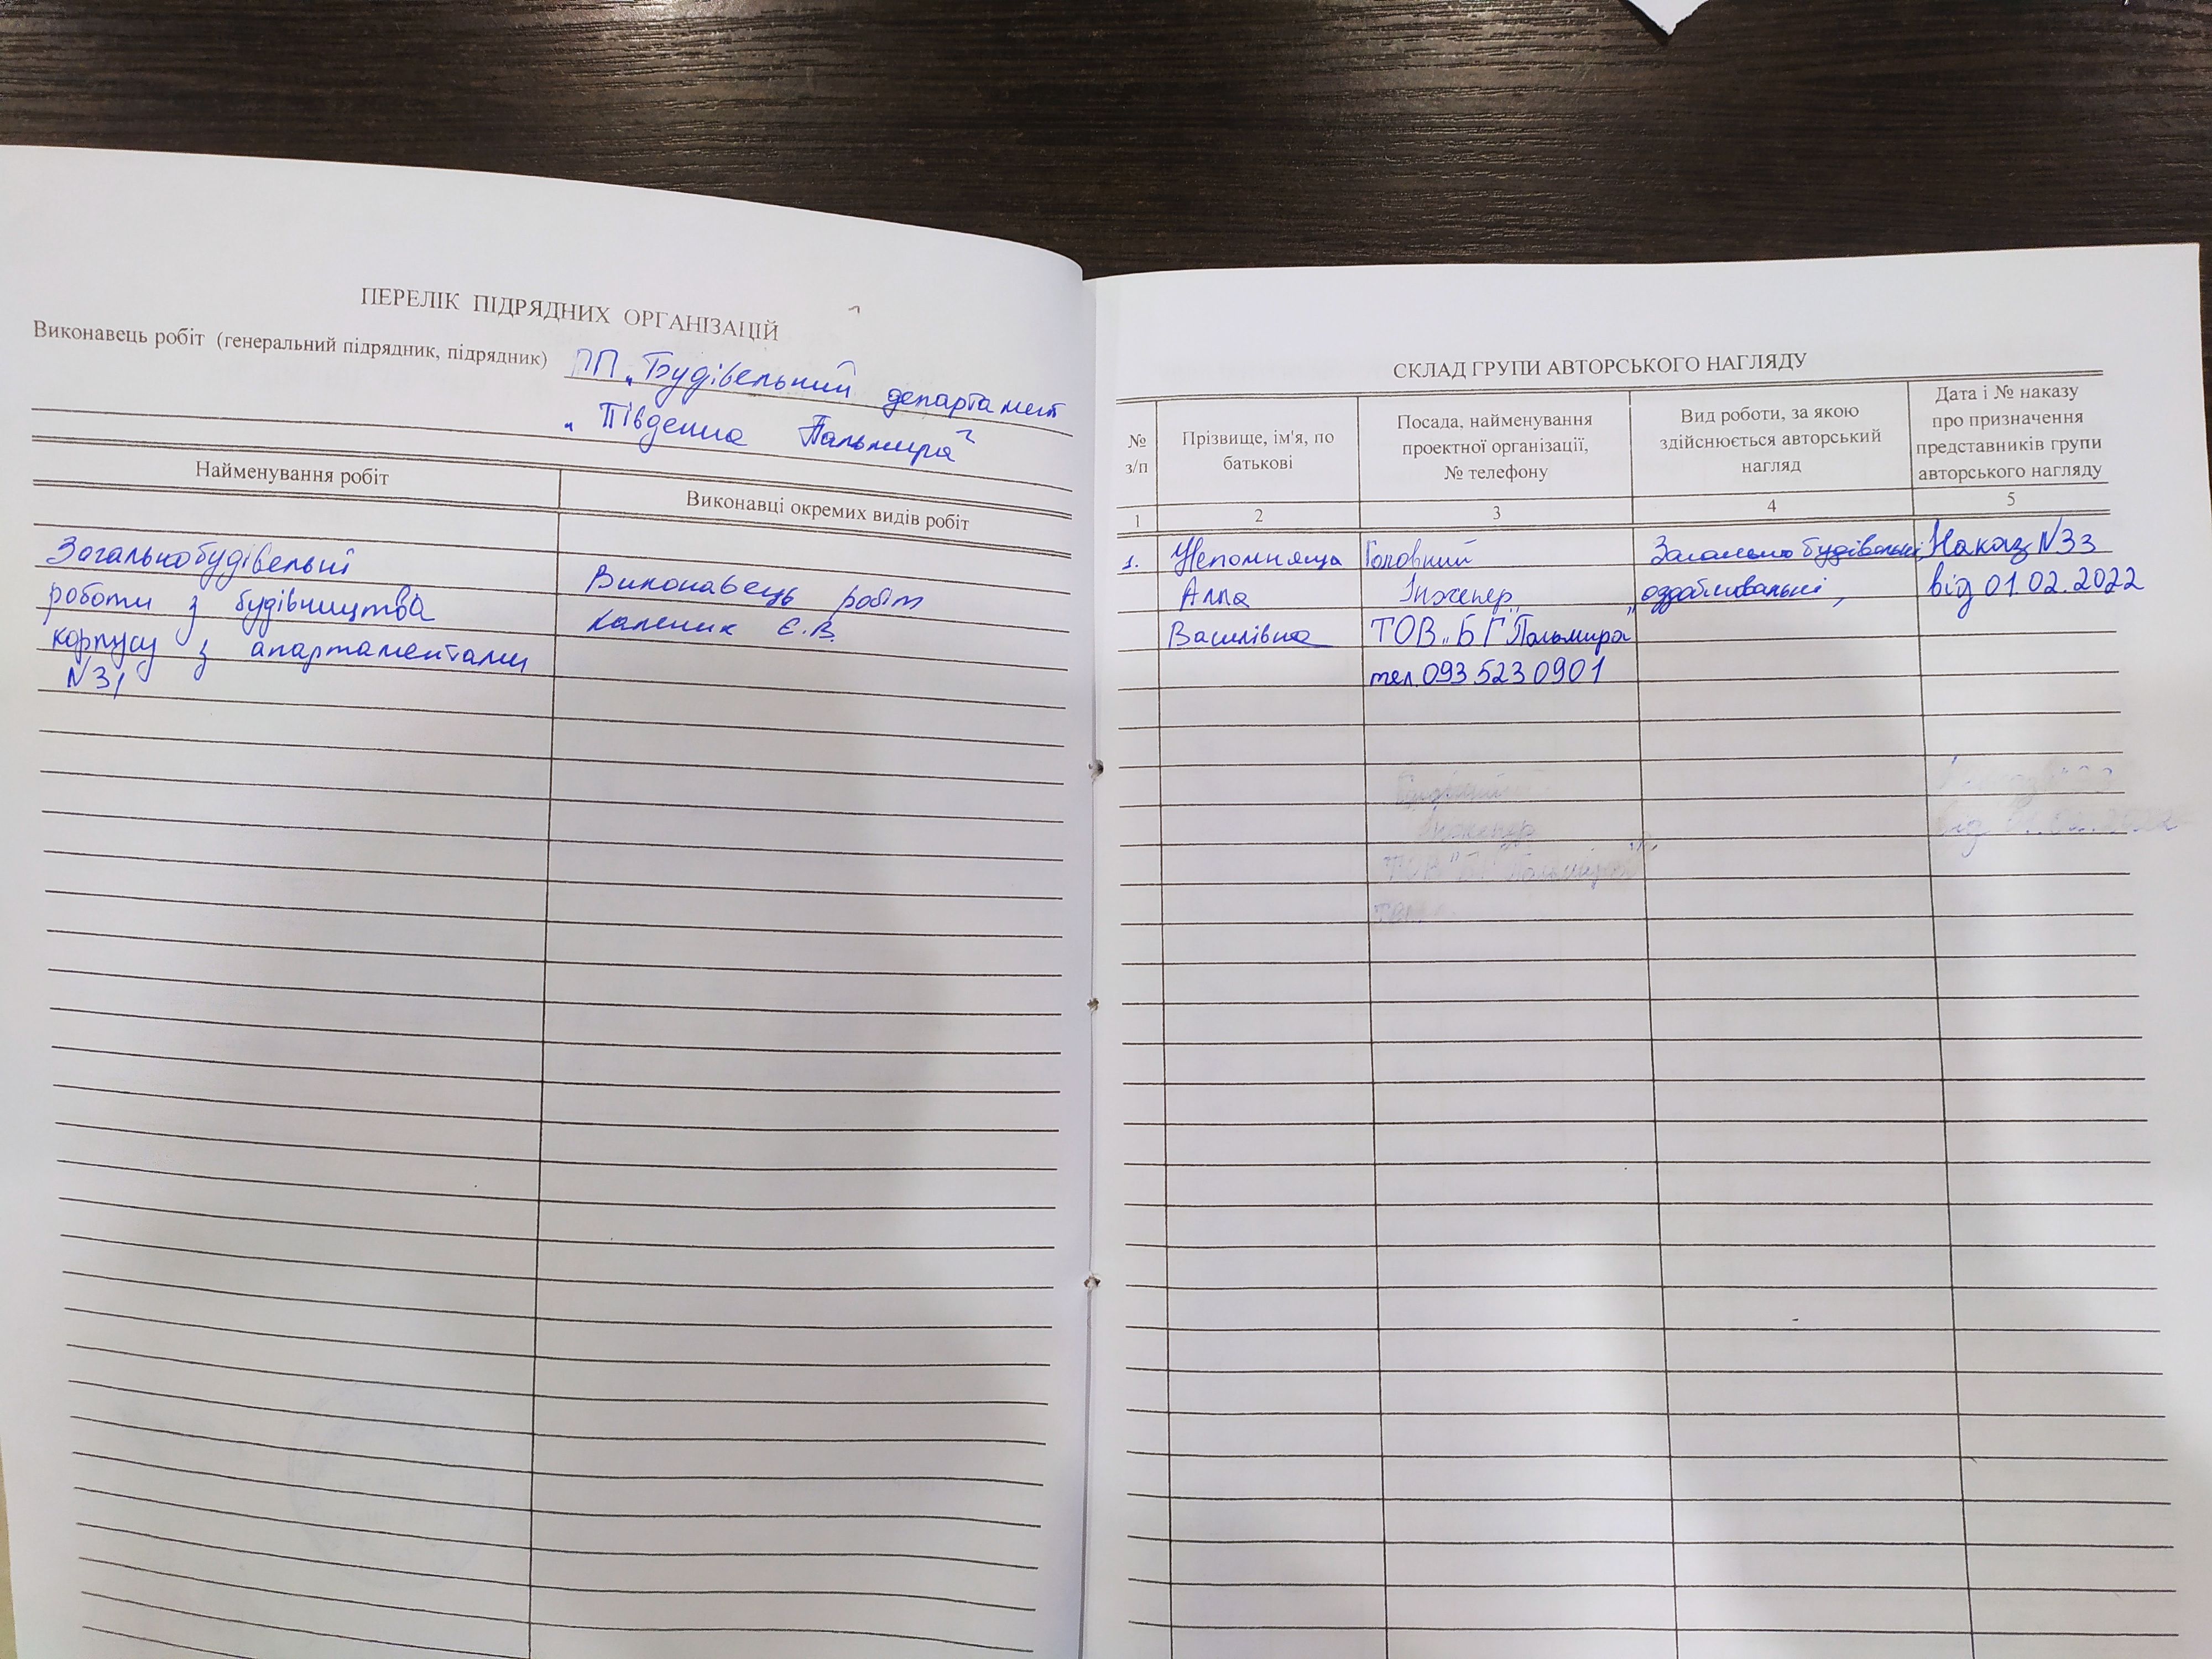 ПЕРЕЛІК ПІДРЯДНИХ ОРГАНІЗАЦІЙ
Виконавець робіт (генеральний підрядник, підрядник) ПП „Будівельний департамент
„Південна Пальмира"
Найменування робіт
Виконавці окремих видів робіт
Загальнобудівельні
роботи з будівництва
корпусу з апартаментами
N31
Виконавець робіт
Каленик Є.В.
СКЛАД ГРУПИ АВТОРСЬКОГО НАГЛЯДУ
№
з/п
Прізвище, ім'я, по
батькові
Посада, найменування
проектної організації,
№ телефону
Вид роботи, за якою
здійснюється авторський
нагляд
Дата і № наказу
про призначення
представників групи
авторського нагляду
1 2 3 4 5
1. Непомняща
Алла
Василівна
Головний
Інженер
ТОВ „БГ „Пальмира"
тел. 093 523 0901
Загально будівельні,
оздоблювальні,
Наказ N33
від 01.02.2022
Інженер